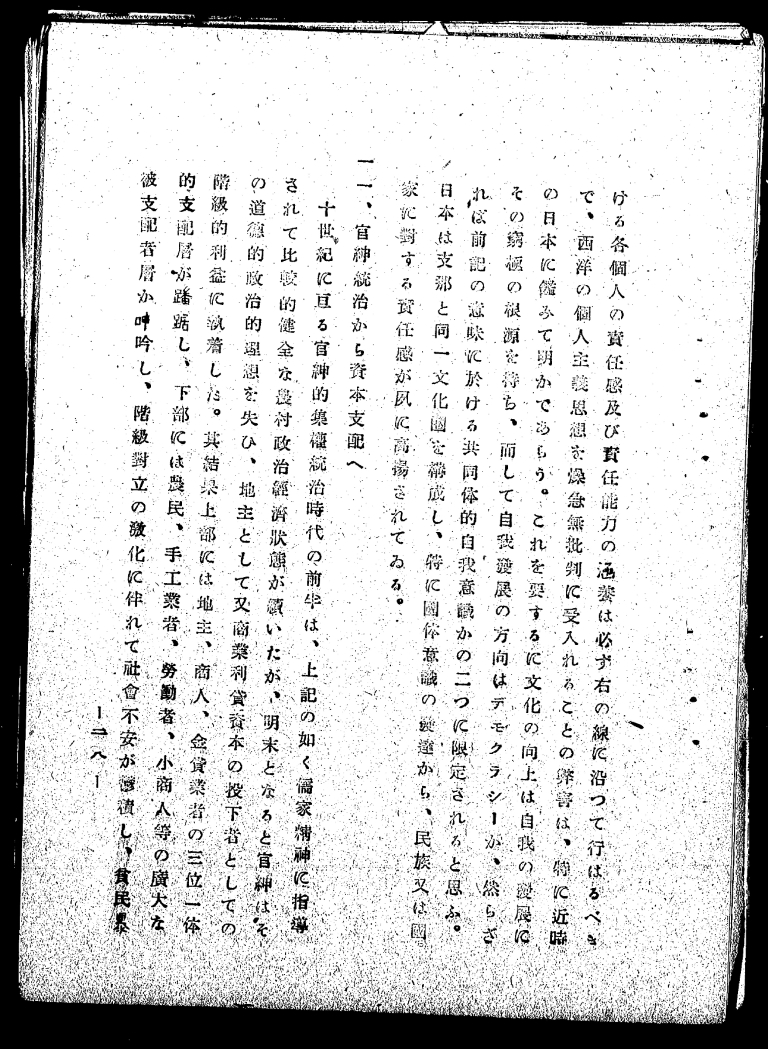 ける各個人の責任感及び責任能力の涵養は必ず右の線に沿つて行はるべき
で、西洋の個人主義思想を燥急無批判に受入れることの弊害は、特に近時
の日本に鑑みて明かであらう。これを要するに文化の向上は自我の發展に
その窮極の根源を待ち、而して自我發展の方向はデモクラシーか、然らざ
れば前記の意味に於ける共同体的自我意識かの二つに限定されると思ふ。
日本は支那と同一文化圈を構成し、特に國体意識の發達から、民族又は國
家に對する責任感が夙に高揚されてゐる。
一一、官紳統治から資本支配へ
十世紀に亘る官紳的集權統治時代の前半は、上記の如く儒家精神に指導
されて比較的健全な農村政治經濟狀態が續いたが、明末となると官紳はそ
の道德的政治的理想を失ひ、地主として又商業利貸資本の投下者としての
階級的利益に執着した。其結果上部には地主、商人、金貸業者の三位一体
的支配層が蟠踞し、下部には農民、手工業者、勞働者、小商人等の廣大な
被支配者層が呻吟し、階級對立の激化に伴れて社會不安が累積し、貧民暴
―二八―